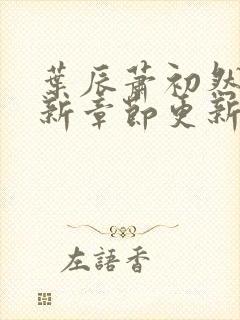 葉辰蕭初然
新章節更新
左語香